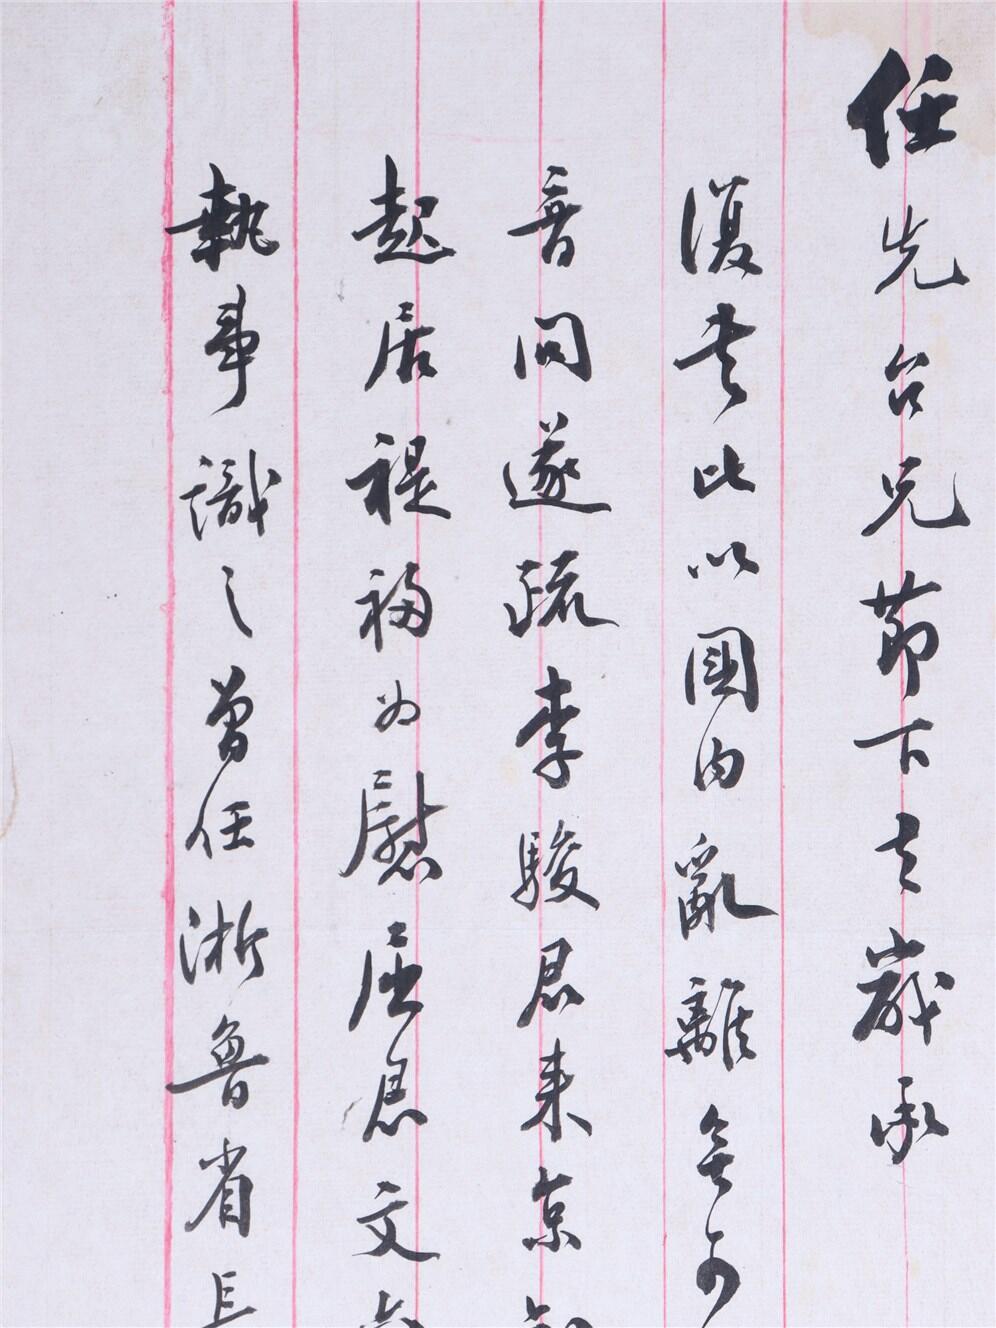 任先台兄節下去歲承
復書比以國内亂離無可
音問遂疏李駿君来京知
起居禔福为慰屈君文六
執事識之曾任浙魯省長